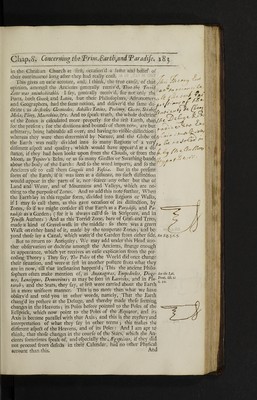 Chap. 8. Concerning the Prim. Earth, and Paradise. 283
in the Christian Church as first, occasion'd a false and belief of
their continuance long after they had really
This gives us only account, and, I think, the true cause, of that
opinion amongst the Ancients generally receiv'd, That the Torrid
Zone was uninhabitable. I say, generally receiv'd; for not only the
Poets, both Greek and Latin, but their Philosophers, Astronomers
and Geographers, had the same notion, and deliver'd the same doctrine;
as Aristotle, Cleomedes, Achilles Tatius, Ptolomy, Cicero, Strabo,
Mela, Pliny, Macrobius, &c. And to speak truth, the whole doctrine
of the Zones is calculated more properly for the first Earth, than
for the present; for the divisions and bounds of them now, are but
arbitrary, being habitable all over, and having no visible distinction:
whereas they were then determin'd by Nature, and the Globe of
the Earth was really divided into so many Regions of a very
different aspect and quality; which would have appear'd at a distance,
if they had been lookt upon from the Clouds, or from the
Moon, as Jupiter's Belts, or as so many Girdles or Swathing-bands
about the body of the Earth: And so the word imports, and so the
Ancients use to call them Cinguli and Fasciæ. But in the present
form of the Earth, if it was seen at a distance, no such distinction
would appear in the parts of it, nor scarce any other but that of
Land and Water, and of Mountains and Valleys, which are nothing
to the purpose of Zones. And to add this note further, When
the Earth lay in this regular form, divided into Regions or Walks,
if I may so call them, as this gave occasion of its distinction, by
Zones, so if we might consider all that Earth as a Paradise, and Paradise
as a Garden; (for it is always call'd so in Scripture, and in
Jewish Authors) And as this Torrid Zone, bare of Grass and Trees,
made a kind of Gravel-walk in the middle; so there was a green
Walk on either hand of it, made by the temperate Zones; and beyond
those lay a Canal, which water'd the Garden from either side.
But to return to Antiquity; We may add under this Head another
observation or doctrine amongst the Ancients, strange enough
in appearance, which yet receives an easie explication from the preceding
Theory; They say, The Poles of the World did once change
their situation, and were at first in another posture from what they
are in now, till that inclination happen'd; This the ancient Philosophers
often make mention of, as Anaxagoras, Empedocles, Diogenes,
Leucippus, Democritus; as may be seen in Laertius, and in Plutarch;
and the Stars, they say, at first were carried about the Earth
in a more uniform manner. This is no more than what we have
observ'd and told you in other words, namely, That the Earth
chang'd its posture at the Deluge, and thereby made these seeming
changes in the Heavens; its Poles before pointed to the Poles of the
Ecliptick, which now point to the Poles of the Æquator, and its
Axis is become parallel with that Axis; and this is the mystery and
interpretation of what they say in other terms; this makes the
different aspect of the Heavens, and of its Poles: And I am apt to
think, that those changes in the course of the Stars, which the Ancients
sometimes speak of, and especially the Ægyptians, if they did
not proceed from defects in their Calendar, had no other Physical
account than this.
And